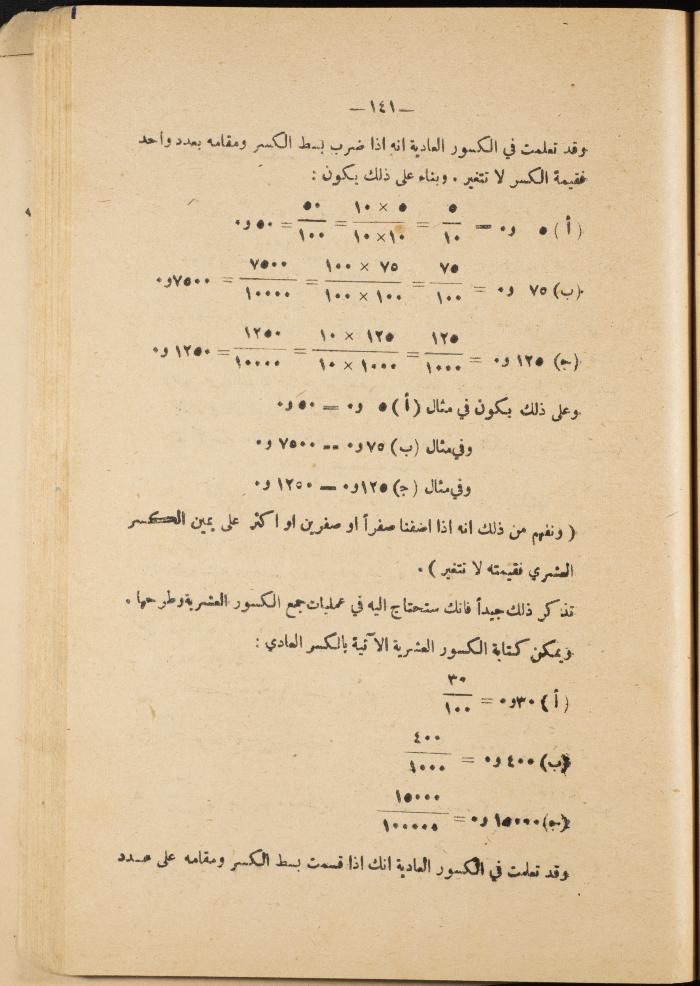 —١٤١—
وقد تعلمت في الكسور العادية انه اذا ضرب بسط الكسر ومقامه بعدد واحد
فقيمة الكسر لا تتغير . وبناء على ذلك يكون :
( أ ) ٥ و٠ = ٥/١٠ = ٥ × ١٠/١٠×١٠ = ٥٠/١٠٠ = ٥٠ و٠
(ب) ٧٥ و٠ = ٧٥/١٠٠ = ٧٥ × ١٠٠/١٠٠ × ١٠٠ = ٧٥٠٠/١٠٠٠٠ = ٧٥٠٠و٠
(ج) ١٢٥ و٠ = ١٢٥/١٠٠٠ = ١٢٥ × ١٠/١٠٠٠ × ١٠ = ١٢٥٠/١٠٠٠٠ = ١٢٥٠ و٠
وعلى ذلك يكون في مثال ( أ ) ٥ و٠ = ٥٠ و٠
وفي مثال (ب) ٧٥ و٠ = ٧٥٠٠ و٠
وفي مثال (ج) ١٢٥ و٠ = ١٢٥٠ و٠
( ونفهم من ذلك انه اذا اضفنا صفراً او صفرين او اكثر على يمين الكسر
العشري فقيمته لا تتغير ) .
تذكر ذلك جيداً فانك ستحتاج اليه في عمليات جمع الكسور العشرية وطرحها .
ويمكن كتابة الكسور العشرية الآتية بالكسر العادي :
( أ ) ٣٠و٠ = ٣٠/١٠٠
(ب) ٤٠٠ و٠ = ٤٠٠/١٠٠٠
(ج) ١٥٠٠٠ و٠ = ١٥٠٠٠/١٠٠٠٠٠
وقد تعلمت في الكسور العادية انك اذا قسمت بسط الكسر ومقامه على عدد